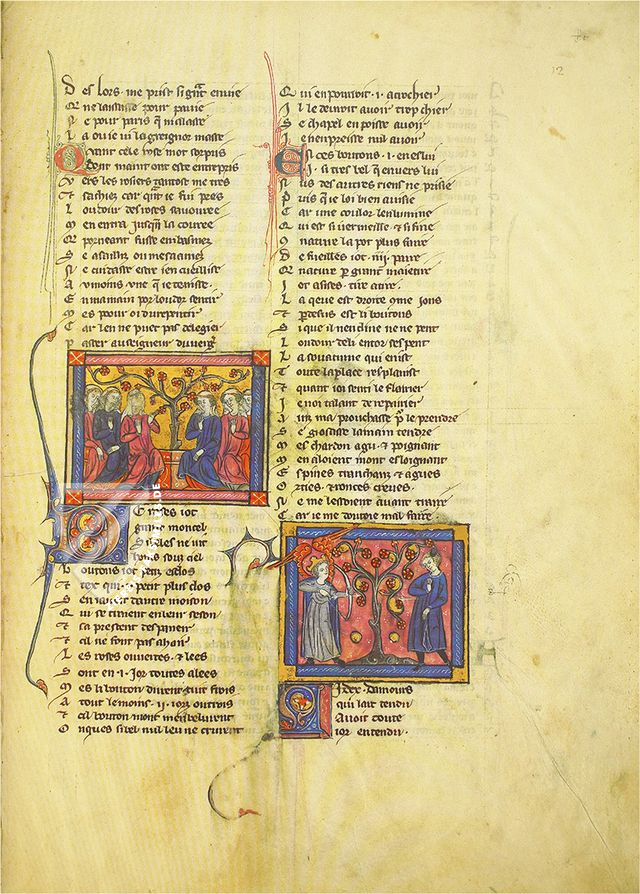 12
Des lors me prist si grant envie
Que ne laissasse pour pavie
Ne pour paris que ni alasse
La ou ie vi la greignor masse
Quant cele rose mot sorpris
Dont maint ont este entrepris
Vers les rosiers tantost me tres
Et sachiez car quant ie fui pres
Loudour des roses savouree
Men entra iusqua la couree
Que por neant fusse embasmez
Se assailliz ou mesamez
Ne cuidasse estre ien cueillisse
Au moins une que ie tenisse
En ma main por loudor sentir
Mes poour oi du repentir
Car len ne puet pas de legier
Paster au seigneur du vergier
De roses iot
grant moncel
Si beles ne vit
hons souz ciel
Boutons iot petiz et clos
Et tex qui . i . petit plus clos
Sen rauoit dautre moison
Qui se tirnent en leur seson
Et sa prestent despanir
Et cil ne font pas a hair
Les roses ouvertes et lees
Sont en . i . ior toutes alees
Mes li bouton durent tuit frois
A tout le moins . ii . iors ou trois
Et cil bouton mont meu belurent
Onques si bel nul leu ne crurent
Qui en porroit . i . acrochier
Il le devroit avoir trop chier
Se chapel en poisse avoir
Ie nen preisse nul avoir
Entre ces boutons . i . en eslui
Si tres bel quenvers lui
Nus des autres riens ne prisie
Puis que ie loi bien avisie
Car une coulor lenlumine
Qui est si vermeille et si fine
Con nature la pot plus faire
De fueilles iot . iiii . paire
Que nature par grant maistire
I ot assises tire a tire
La queue est droite come ions
Et par desus est li boutons
Si que il nencline ne ne pent
Loudour de li entor sespent
La souatume qui en ist
Toute la place resplanist
Et quant ioi senti le flairier
Ie noi talant de repairier
Ainz ma prouchasse por le prendre
Se giosasse la main tendre
Mes chardon agu et poignant
Men aloient mont esloignant
Espines tranchanz et agues
Orties et ronces creues
Ne me lessoient avant traire
Car ie me doutoie mal faire
Li dex damours
qui lait tendu
Avoit toute
ior entendu